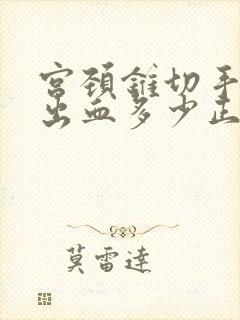 宫颈锥切手
出血多少正
莫雷達